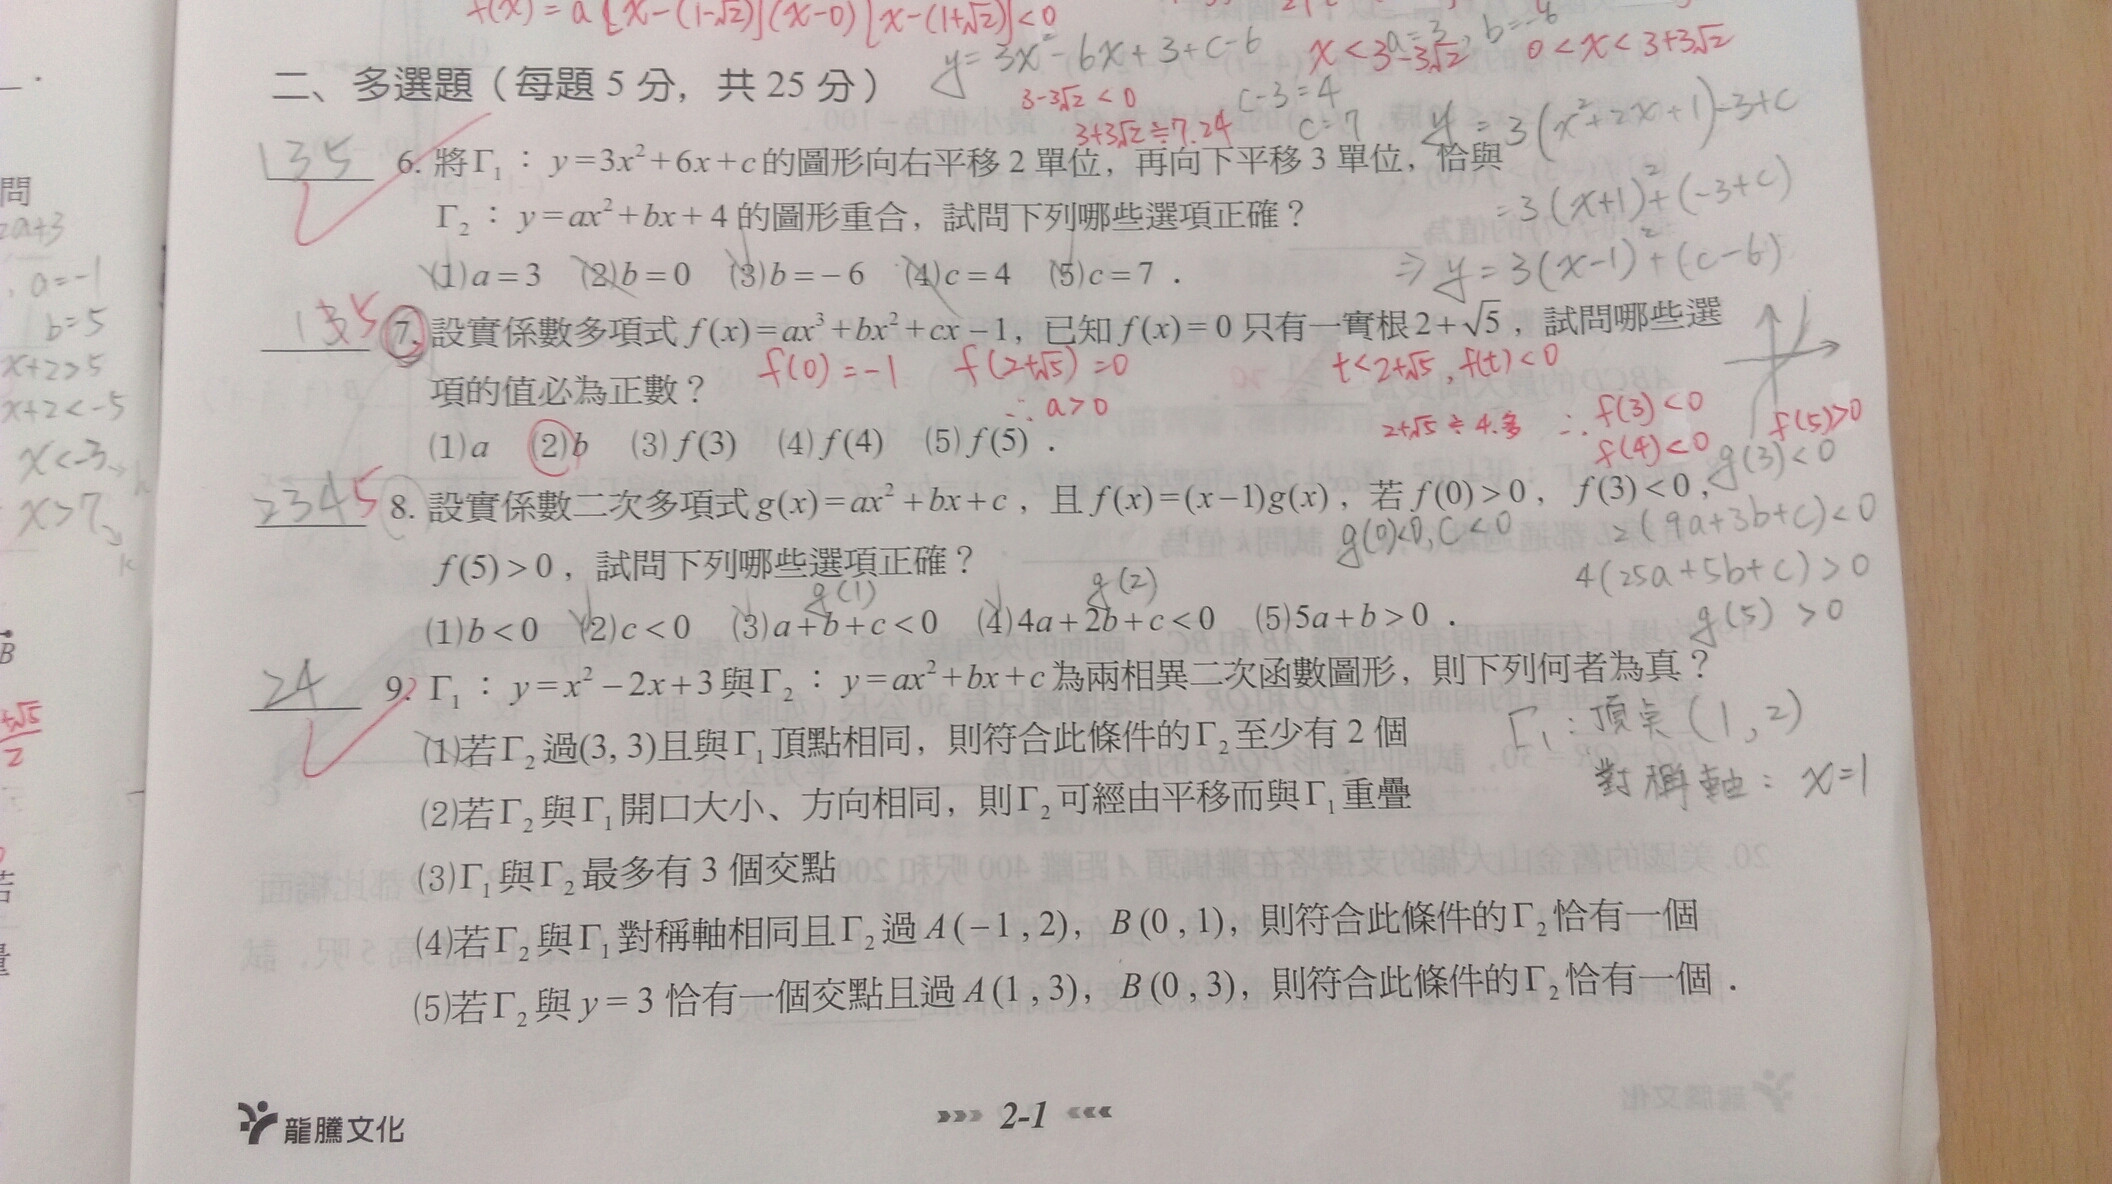 f(x) = a[x-(1-√2)](x-0)[x-(1+√2)]<0
y = 3x²-6x+3+c-6
a=3, b=-6
x<3-3√2, 0<x<3+3√2
二、多選題（每題 5 分，共 25 分）
3-3√2<0
3+3√2≒7.24
c-3=4
c=7
y=3(x²+2x+1)-3+c
=3(x+1)²+(-3+c)
⇒ y=3(x-1)²+(c-6)
135 6. 將Γ₁：y=3x²+6x+c的圖形向右平移 2 單位，再向下平移 3 單位，恰與
Γ₂：y=ax²+bx+4 的圖形重合，試問下列哪些選項正確？
(1)a=3 (2)b=0 (3)b=-6 (4)c=4 (5)c=7．
7. 設實係數多項式 f(x)=ax³+bx²+cx-1，已知 f(x)=0 只有一實根 2+√5，試問哪些選
項的值必為正數？
f(0)=-1 f(2+√5)=0
∴a>0
t<2+√5, f(t)<0
∴f(3)<0
f(4)<0
f(5)>0
(1)a (2)b (3)f(3) (4)f(4) (5)f(5)．
2345 8. 設實係數二次多項式 g(x)=ax²+bx+c，且 f(x)=(x-1)g(x)，若 f(0)>0，f(3)<0，
g(3)<0
f(5)>0，試問下列哪些選項正確？
g(0)<0, c<0
2(9a+3b+c)<0
4(25a+5b+c)>0
g(5)>0
g(1) g(2)
(1)b<0 (2)c<0 (3)a+b+c<0 (4)4a+2b+c<0 (5)5a+b>0．
24 9. Γ₁：y=x²-2x+3與Γ₂：y=ax²+bx+c為兩相異二次函數圖形，則下列何者為真？
Γ₁：頂点(1,2)
對稱軸：x=1
(1)若Γ₂過(3, 3)且與Γ₁頂點相同，則符合此條件的Γ₂至少有 2 個
(2)若Γ₂與Γ₁開口大小、方向相同，則Γ₂可經由平移而與Γ₁重疊
(3)Γ₁與Γ₂最多有 3 個交點
(4)若Γ₂與Γ₁對稱軸相同且Γ₂過 A(-1 , 2)，B(0 , 1)，則符合此條件的Γ₂恰有一個
(5)若Γ₂與 y=3 恰有一個交點且過 A(1 , 3)，B(0 , 3)，則符合此條件的Γ₂恰有一個．
龍騰文化
2-1
問
2a+3
a=-1
b=5
x+2>5
x+2<-5
x<-3
x>7
B